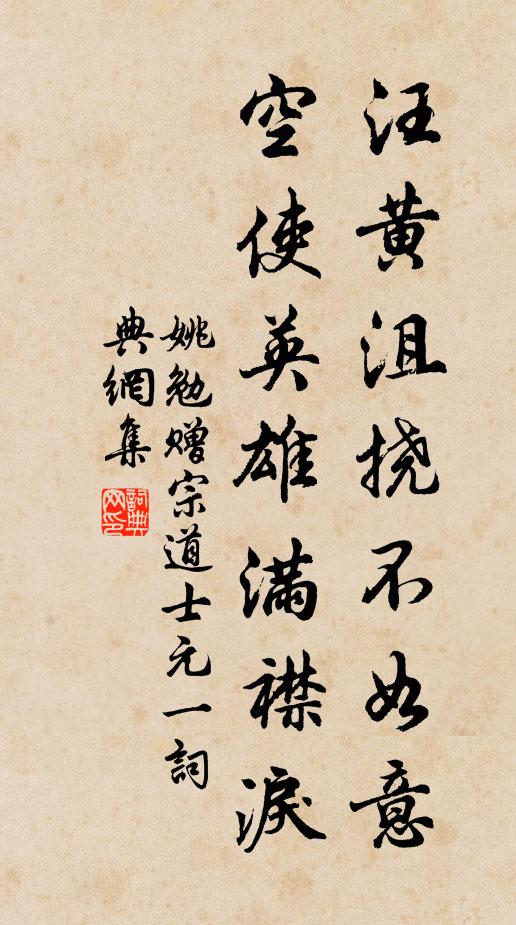 汪黄沮挠不如意
空使英雄满襟淚
姚勉赠宗道士元一詞
典網集
詞典網印